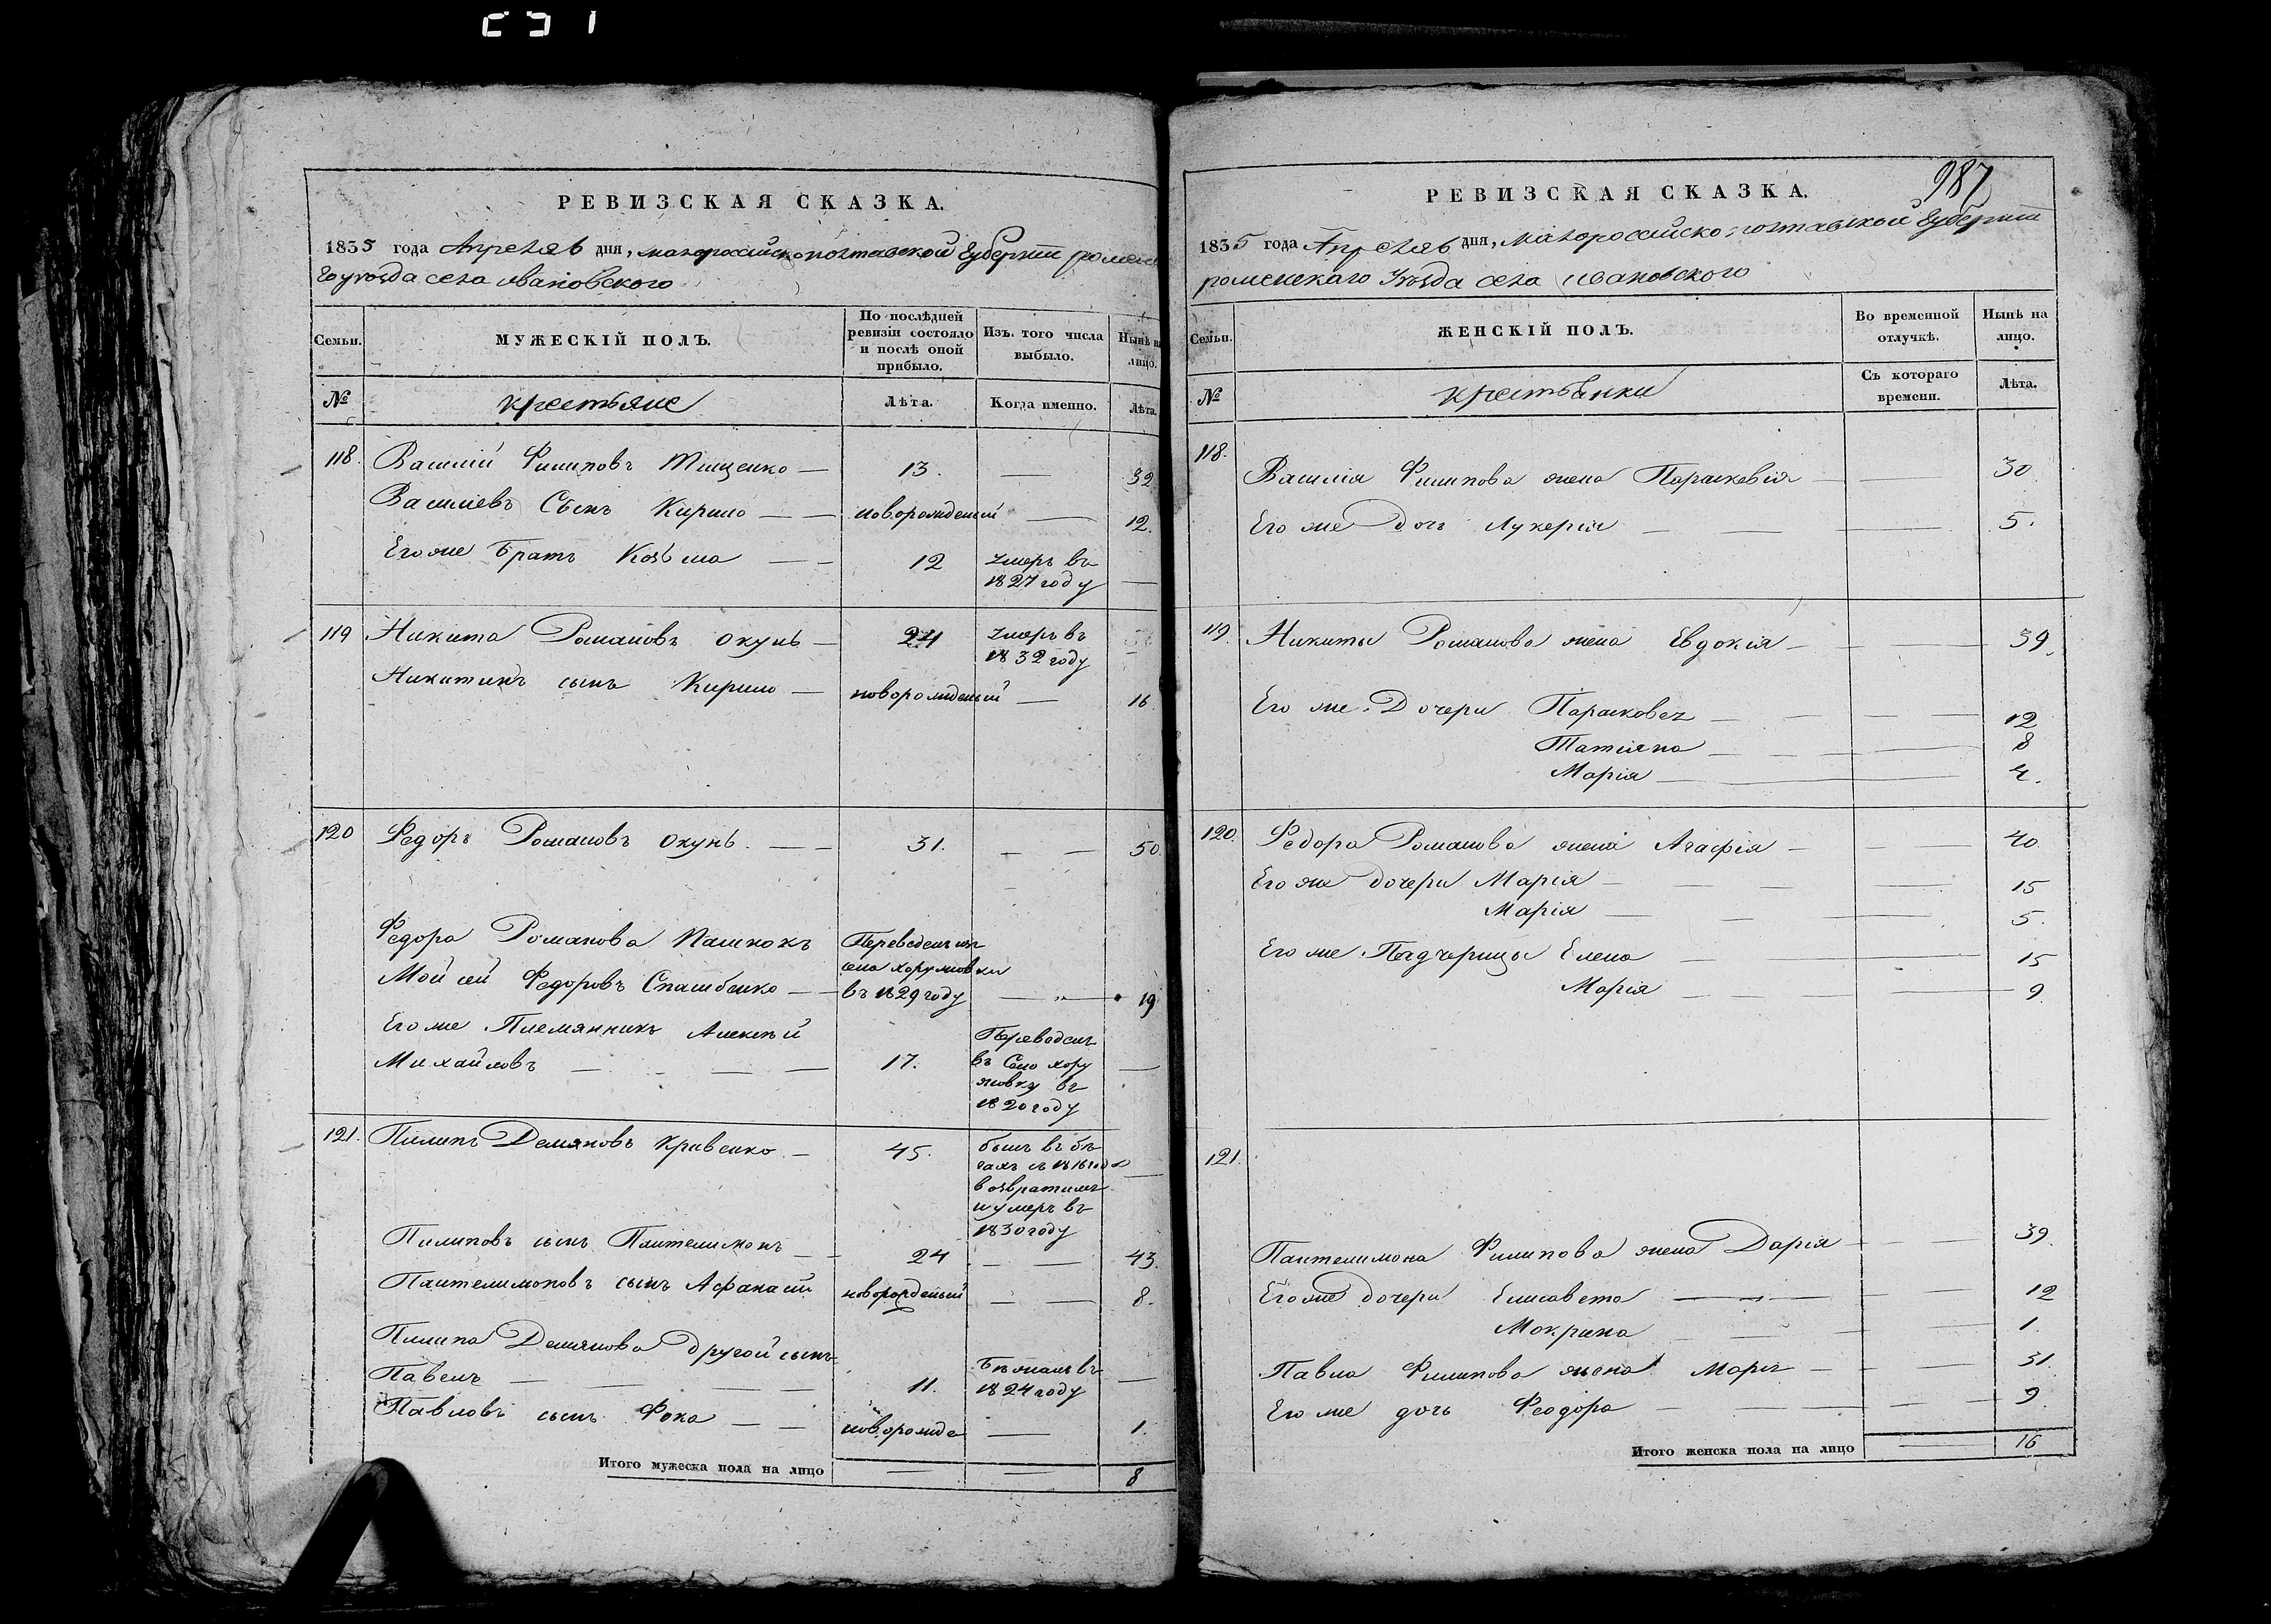 РЕВИЗСКАЯ СКАЗКА.
1835 года Апреля дня, малороссийско полтавской Губернии ромен
го уезда села ивановского
Семьи. МУЖЕСКІЙ ПОЛЪ. По послѣдней ревизіи состояло и послѣ оной прибыло. Изъ того числа выбыло. Нынѣ на лицо.
№ крестьяне Лѣта. Когда именно. Лѣта.
118. Василій Филиповъ Тищенко — 13. — 32
Василіевъ Сынъ Кирило — — новорожденій — 12.
Его же Братъ Козьма — — 12 умеръ въ 1827 году —
119 Никита Романовъ Окунь — 24 умеръ въ 1832 году —
Никитинъ сынъ Кирило — новорожденій — 16.
120 Федоръ Романовъ Окунь. — — 31. — — 50.
Федора Романова Пашнокъ
Мойсей Федоровъ Спашбенко — — Переведенъ изъ села хоружовки въ 1829 году — „ — 19
Его же Племянникъ Алексѣй
Михайловъ — — — — 17. Переведенъ въ Село хоружовку въ 1820 году —
121. Пилипъ Демяновъ Кравенко — 45. былъ въ бѣгахъ съ 1816 года возвратилъ и умеръ въ 1830 году —
Пилиповъ сынъ Пантелимонъ — — 24 — — 43.
Пантелимоновъ сынъ Афанасій новорожденый — — 8.
Пилипа Демянова другой сынъ
Павелъ — — — — 11. Бѣжалъ въ 1824 году —
Павловъ сынъ Фока — — новорожде — 1.
Итого мужеска пола на лицо — — 8
987
РЕВИЗСКАЯ СКАЗКА.
1835 года Апреля дня, малороссійско полтавской Губерніи
роменскаго Уѣзда села ивановского
Семьи. ЖЕНСКІЙ ПОЛЪ. Во временной отлучкѣ. Нынѣ на лицо.
№ крестьянки Съ котораго времени. Лѣта.
118. Василія Филипова жена Параскевія — — 30
Его же дочь Лукерія — — — 5.
119. Никиты Романова жена Евдокія — — — 39.
Его же Дочери Парасковея — — — — 12
Татіяна — — — 8
Марія — — 4.
120. Федора Романова жена Агафія — — 40
Его же дочери Марія — — — — 15
Марія — — — 5.
Его же Падчерицы Елена — — 15
Марія — — — 9
121.
Пантелимона Филипова жена Дарія — — — 39.
Его же дочери Елисавета — — — 12
Мокрина — — — 1.
Павла Филипова жена Маря — — — 31.
Его же дочь Феодора — — — — 9.
Итого женска пола на лицо — 16